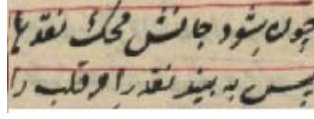 چون شود جانش محک نقدها
پس به بیند نقد را و قلب را